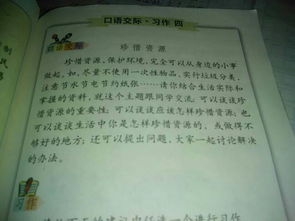 口语交际·习作 四
口语交际
珍惜资源
珍惜资源,保护环境,完全可以从身边的小事
做起。如,尽量不使用一次性物品,实行垃圾分类,
注意节水节电节约纸张……请你结合生活实际和
掌握的资料,就这个主题跟同学交流,可以谈谈珍
惜资源的重要性;可以谈谈应该怎样珍惜资源;也
可以谈谈生活中你是怎样珍惜资源的,或做得不
够好的地方;还可以提出问题,大家一起讨论解决
的办法。
习作